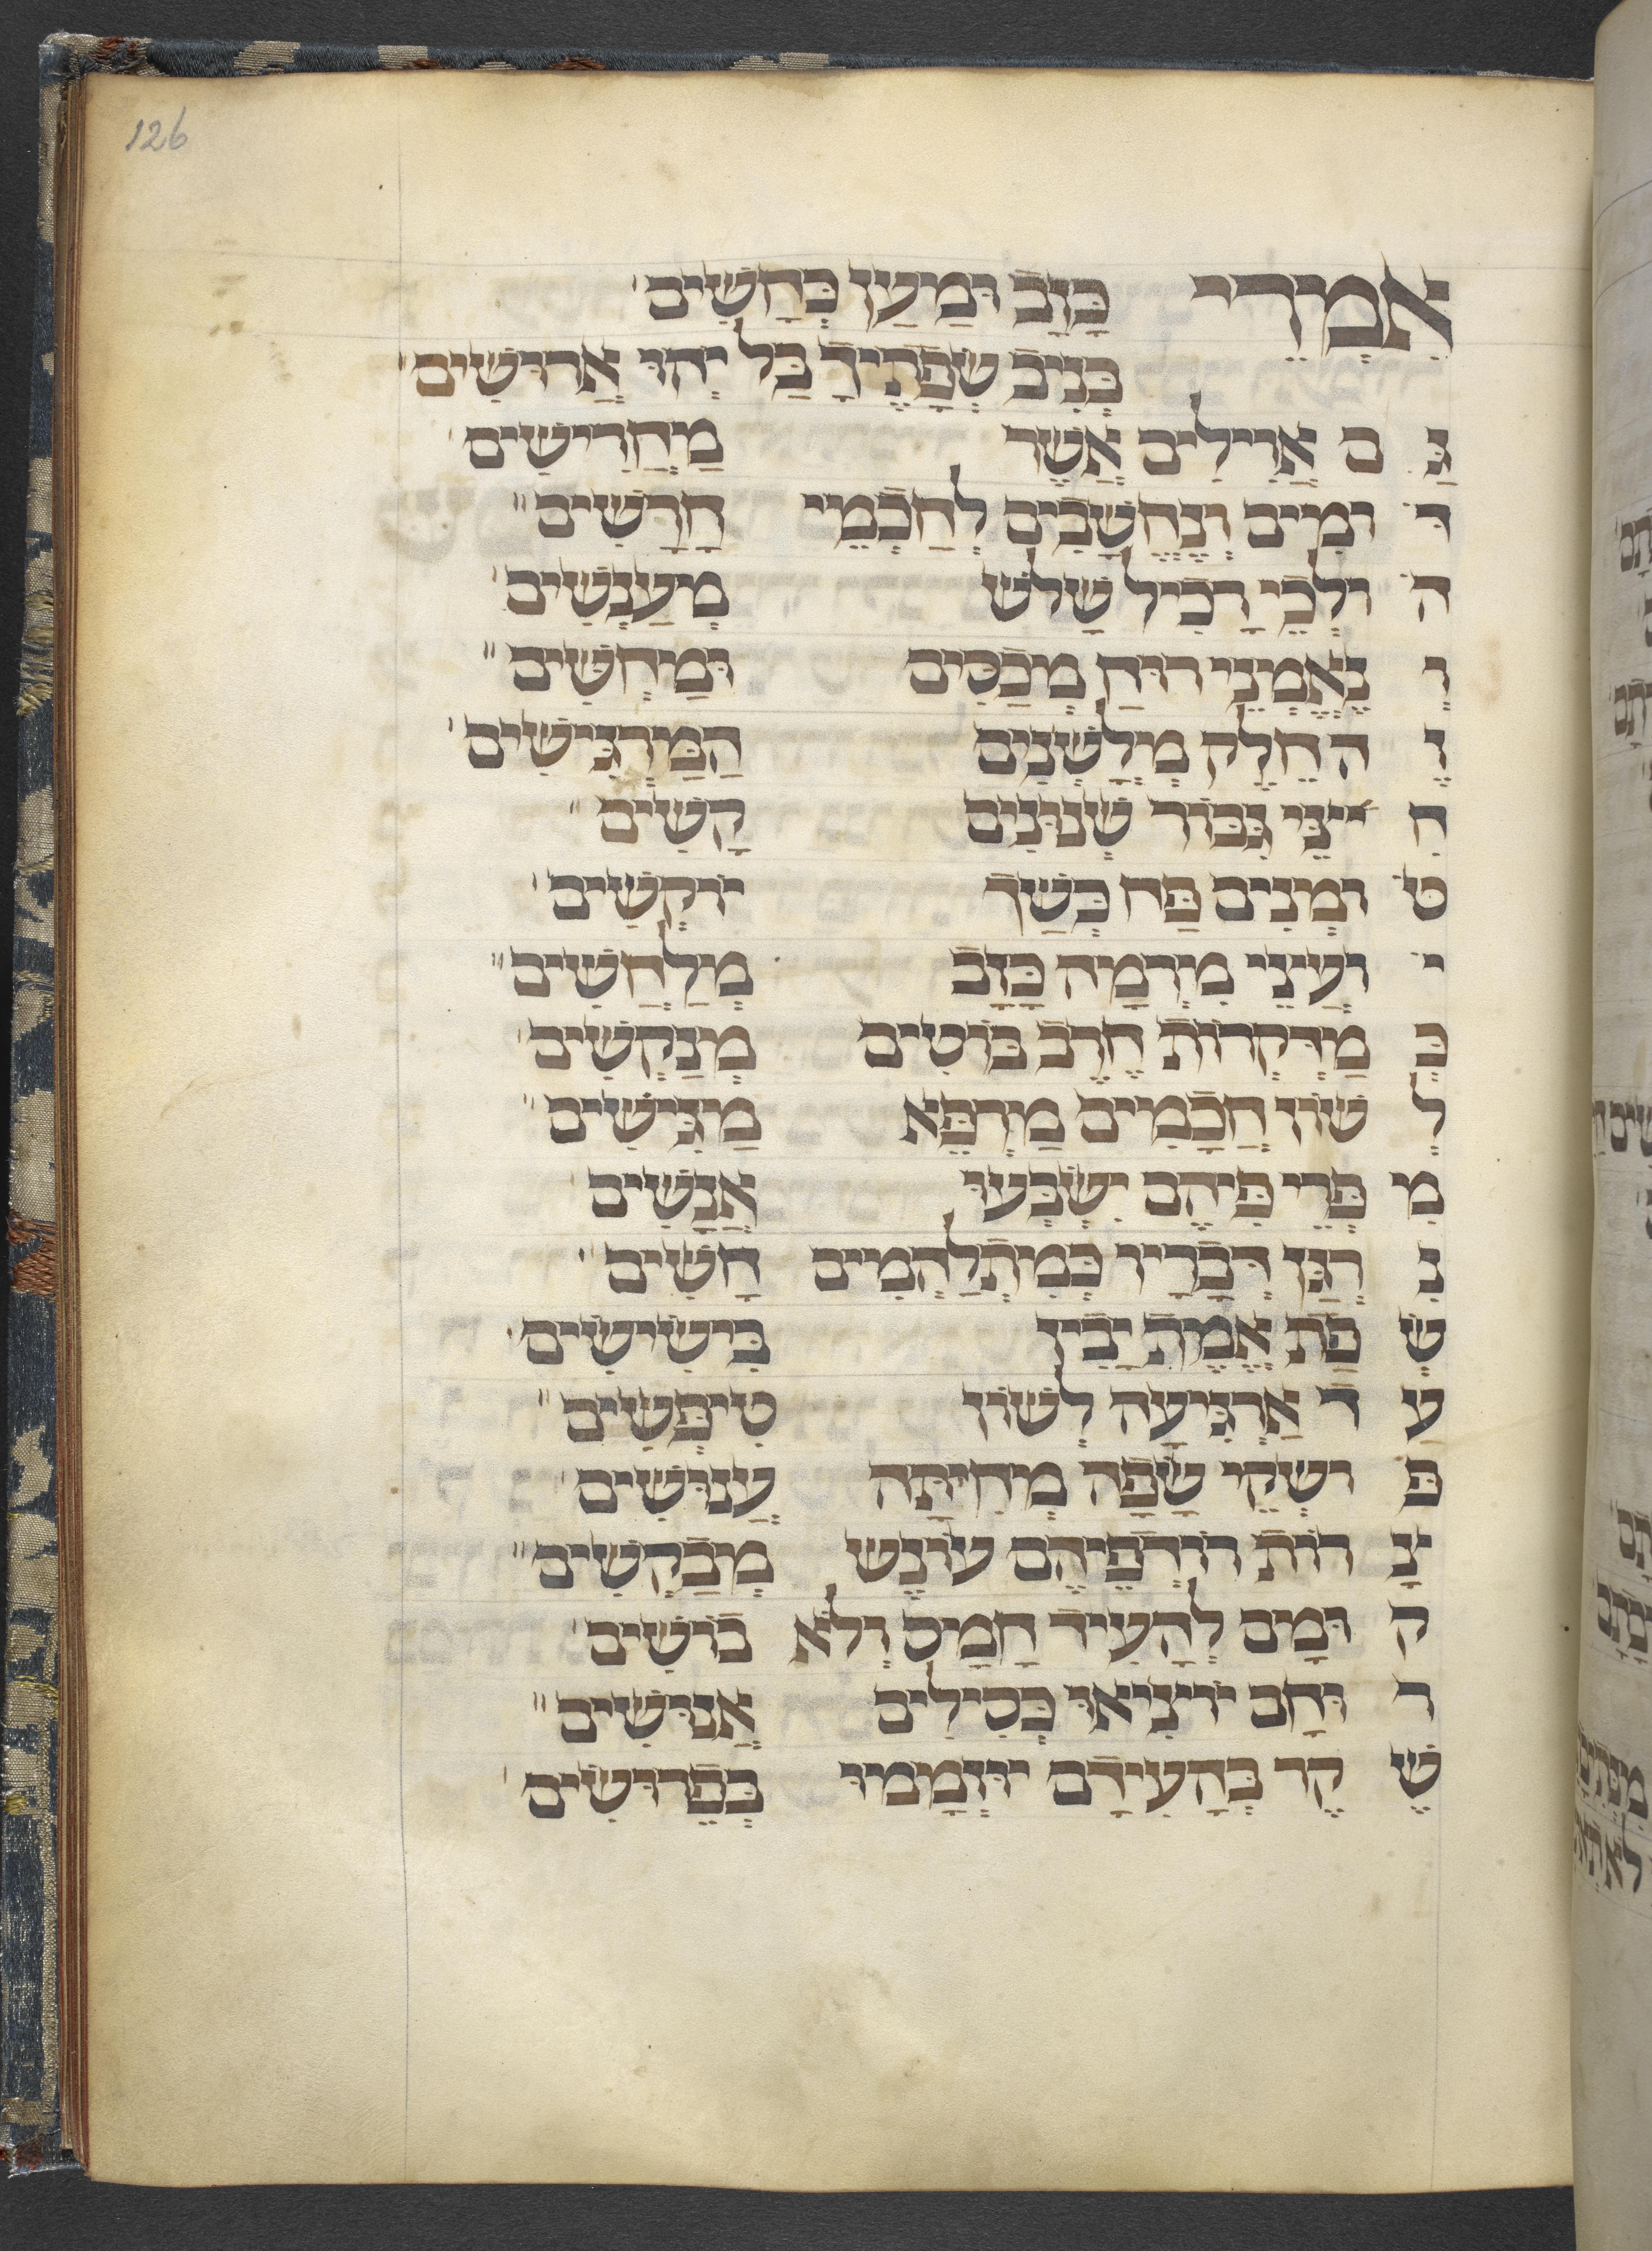 126
אִמְרֵי כָּזָב וּמַעַן כְּחָשִׁים
בְּנִיב שְׂפָתֶיךָ בַּל יְהוּ אֲרוּשִׁים
גַּ ם אֱוִילִים אֲשֶׁר מַחֲרִישִׁים
דּ וֹמִים וְנֶחֱשָׁבִים לְחַכְמֵי חֲרָשִׁים
ה וֹלְכֵי רָכִיל שָׁלשׁ מְעַנְשִׁים
וְ נֶאֶמְנֵי רוּחַ מְכַסִּים וּמַחְשִׁים
זֶ ה חֵלֶק מְלָשְׁנִים הַמַּרְגִּישִׁים
חִ יצֵּי גִבּוֹר שְׁנוּנִים קָשִׁים
ט וֹמְנִים פַּח כְּשַׁךְ יוֹקְשִׁים
י וֹעֲצֵי מִרְמָה כָּזָב מְלַחֲשִׁים
כְּ מַדְקְרוֹת חֶרֶב בּוֹטִים מְנַקְשִׁים
לְ שׁוֹן חֲכָמִים מַרְפֵּא מַגִּישִׁים
מִ פְּרִי פִּיהֶם יִשְׂבְּעוּ אֲנָשִׁים
נִ רְגַּן דְּבָרָיו כְּמִתְלַהֲמִים חָשִׁים
שְׂ פַת אֱמֶת יָכִין בִּישִׁישִׁים
עַ ד אַרְגִּיעָה לְשׁוֹן טִיפְּשִׁים
פּ וֹשְׂקֵי שָׂפָה מְחִיתָּה עֲנוּשִׁים
צָ רוֹת רוֹדְפֵיהֶם עוֹנֶשׁ מְבַקְשִׁים
ק וּמָם לְהָעִיד חָמָס וְלֹא בוֹשִׁים
ר וּחָם יוֹצִיאוּ כְּסִילִים אֲנוּשִׁים
שֶׁ קֶר בְּהָעִידָם יוּזְמָמוּ בְּפֵרוּשִׁים